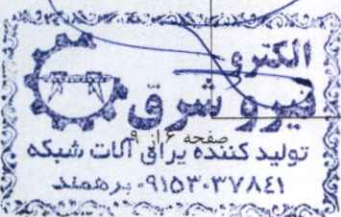 الکترو
نیرو شرق
صفحه ۶ از ۹
تولید کننده یراق آلات شبکه
۰۹۱۵۳۰۳۷۸۴۱ برهمند